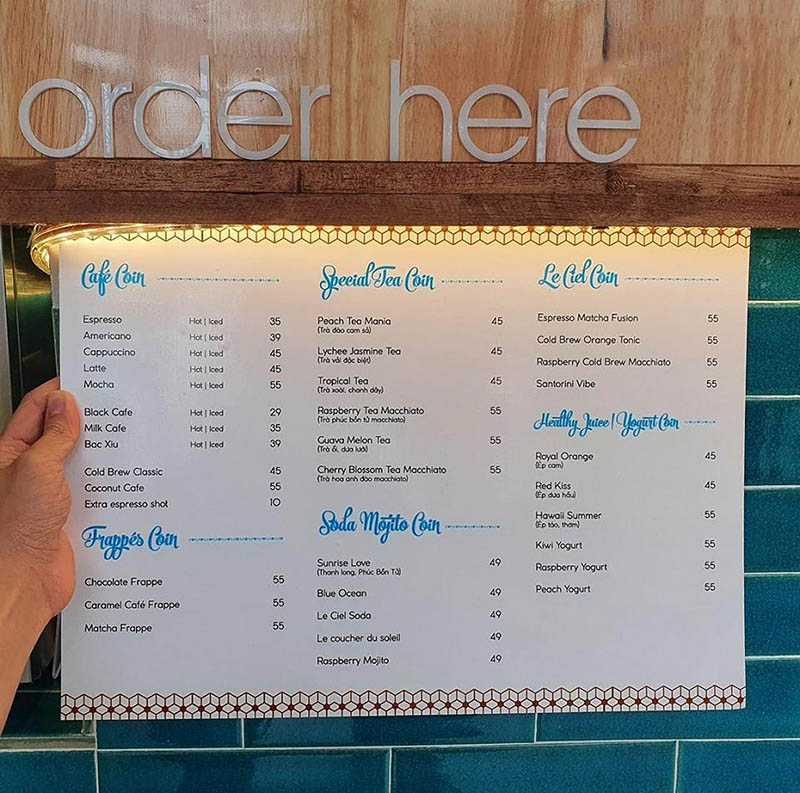 order here
Café Coin
Espresso Hot | Iced 35
Americano Hot | Iced 39
Cappuccino Hot | Iced 45
Latte Hot | Iced 45
Mocha Hot | Iced 55
Black Cafe Hot | Iced 29
Milk Cafe Hot | Iced 35
Bac Xiu Hot | Iced 39
Cold Brew Classic 45
Coconut Cafe 55
Extra espresso shot 10
Frappés Coin
Chocolate Frappe 55
Caramel Café Frappe 55
Matcha Frappe 55
Special Tea Coin
Peach Tea Mania 45
(Trà đào cam sả)
Lychee Jasmine Tea 45
(Trà vải đặc biệt)
Tropical Tea 45
(Trà xoài, chanh dây)
Raspberry Tea Macchiato 55
(Trà phúc bồn tử macchiato)
Guava Melon Tea 55
(Trà ổi, dưa lưới)
Cherry Blossom Tea Macchiato 55
(Trà hoa anh đào macchiato)
Soda Mojito Coin
Sunrise Love 49
(Thanh long, Phúc Bồn Tử)
Blue Ocean 49
Le Ciel Soda 49
Le coucher du soleil 49
Raspberry Mojito 49
Le Ciel Coin
Espresso Matcha Fusion 55
Cold Brew Orange Tonic 55
Raspberry Cold Brew Macchiato 55
Santorini Vibe 55
Healthy Juice | Yogurt Coin
Royal Orange 45
(Ép cam)
Red Kiss 45
(Ép dưa hấu)
Hawaii Summer 55
(Ép táo, thơm)
Kiwi Yogurt 55
Raspberry Yogurt 55
Peach Yogurt 55